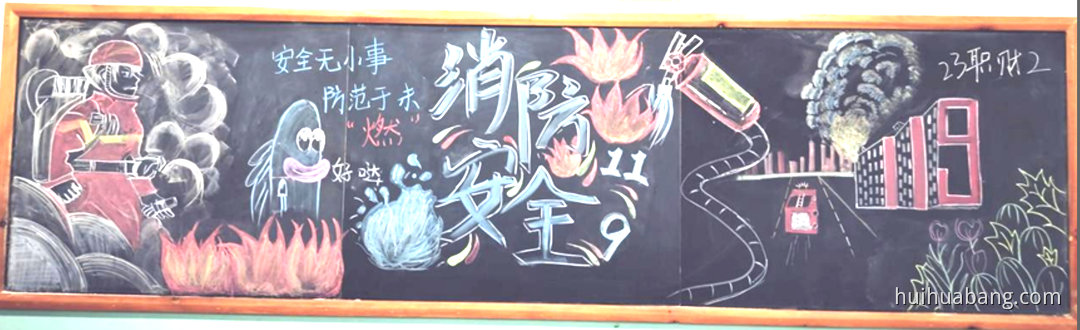 安全无小事
防范于未
"燃"
好哒
消防
安全
11
9
119
23职财2
huihuabang.com